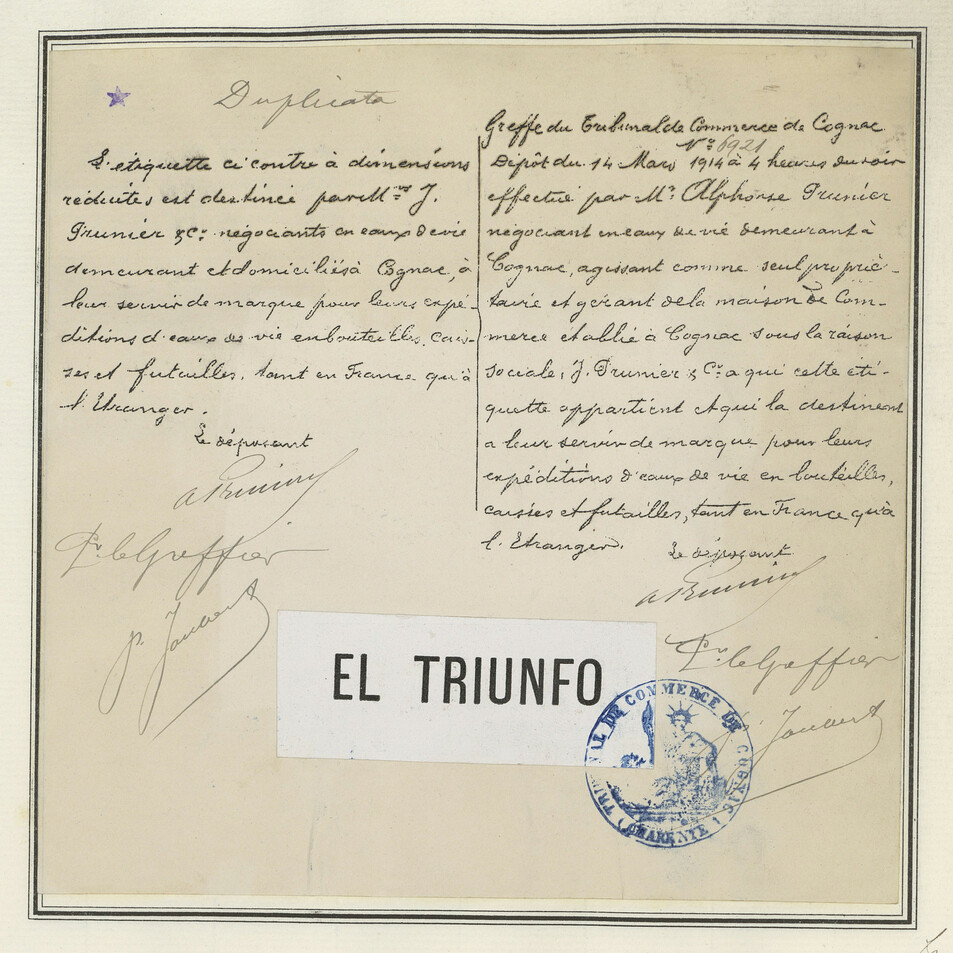 Duplicata
L'étiquette ci contre à dimensions
réduites est destinée par Mrs J.
Prunier & Cie négociants en eaux de vie
demeurant et domiciliés à Cognac, à
leur servir de marque pour leurs expé-
ditions d'eaux de vie en bouteilles, cais-
ses et futailles, tant en France qu'à
l'Etranger.
Le déposant
A Prunier
Pr. le Greffier
P. Joubert
Greffe du Tribunal de Commerce de Cognac
No. 6921
Dépôt du 14 Mars 1914 à 4 heures du soir
effectué par Mr. Alphonse Prunier
négociant en eaux de vie demeurant à
Cognac, agissant comme seul proprié-
taire et gérant de la maison de Com-
merce établie à Cognac sous la raison
sociale, J. Prunier & Cie a qui cette éti-
quette appartient et qui la destinent
a leur servir de marque pour leurs
expéditions d'eaux de vie en bouteilles,
caisses et futailles, tant en France qu'à
l'Etranger.
Le déposant
A Prunier
Pr. le Greffier
Joubert
EL TRIUNFO
TRIBUNAL DE COMMERCE DE COGNAC
(CHARENTE)